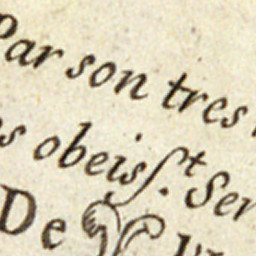 Par son tres
obeiſſ.t Ser
De